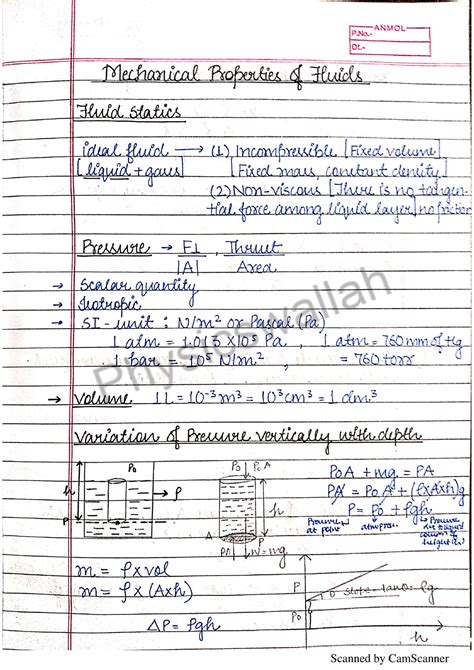 ANMOL
P.No.
Dt.-
Mechanical Properties of Fluids
Fluid Statics
ideal fluid → (1) Incompressible [Fixed volume]
[liquid + gases] [Fixed mass, constant density]
(2) Non-viscous [There is no tangen-
tial force among liquid layer] no friction
Pressure → F⊥ , Thrust
|A| Area
→ Scalar quantity
→ Isotropic
→ SI-unit : N/m² or Pascal (Pa)
1 atm = 1.013 × 10⁵ Pa , 1 atm = 760 mm of Hg
1 bar = 10⁵ N/m² , = 760 torr
→ Volume 1L = 10⁻³m³ = 10³cm³ = 1 dm³
Variation of Pressure vertically with depth
P₀
h
ρ
P
P₀ P₀A
h
A
PA W=mg
P₀A + mg = PA
PA = P₀A + (ρAxh)g
P = P₀ + ρgh
Pressure at point
atmpres.
Pressure due to liquid column of height (h)
m = ρ x vol
m = ρ x (Axh)
ΔP = ρgh
P
P₀
θ slope = tanθ = ρg
h
Physicswallah
Scanned by CamScanner